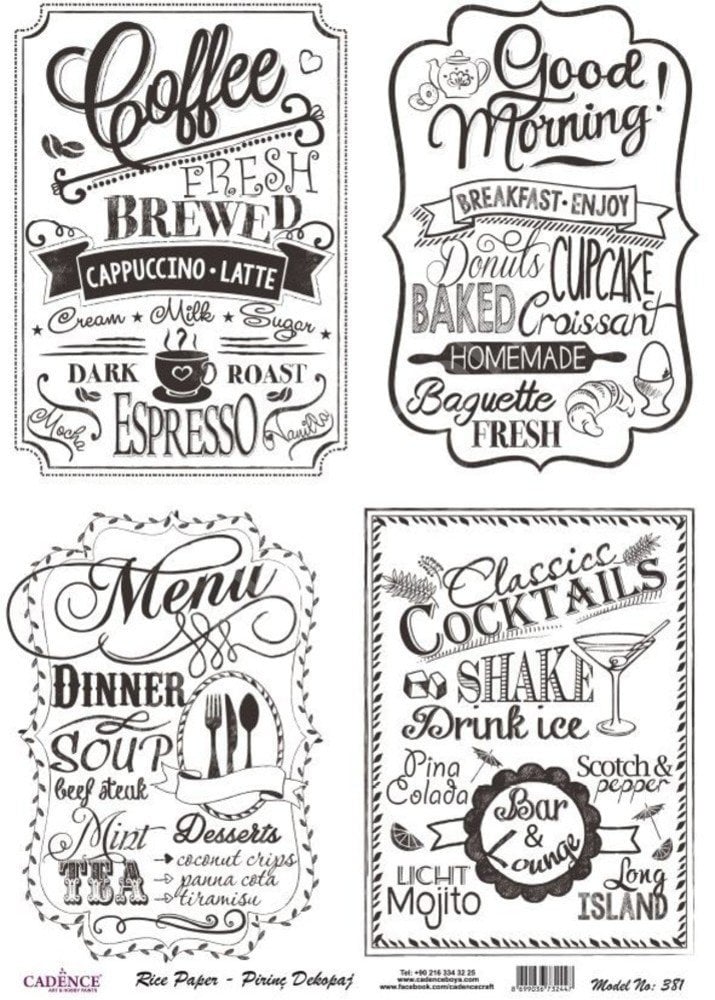 Coffee
FRESH
BREWED
CAPPUCCINO • LATTE
Cream ★ Milk ★ Sugar ★
DARK ROAST
Mocha ESPRESSO Vanilla
Good
Morning!
BREAKFAST • ENJOY
Donuts CUPCAKE
BAKED Croissant
HOMEMADE
Baguette
FRESH
Menu
DINNER
SOUP
beef steak
Mint
TEA
Desserts
coconut crips
panna cota
tiramisu
Classics
COCKTAILS
SHAKE
Drink ice
Pina
Colada
Scotch &
pepper
Bar
&
Lounge
LICHT
Mojito
Long
ISLAND
CADENCE
ART & HOBBY PAINTS
Rice Paper - Pirinç Dekopaj
Tel: +90 216 334 32 25
www.cadenceboya.com
www.facebook.com/cadencecraft
8 699036 732447
Model No: 381